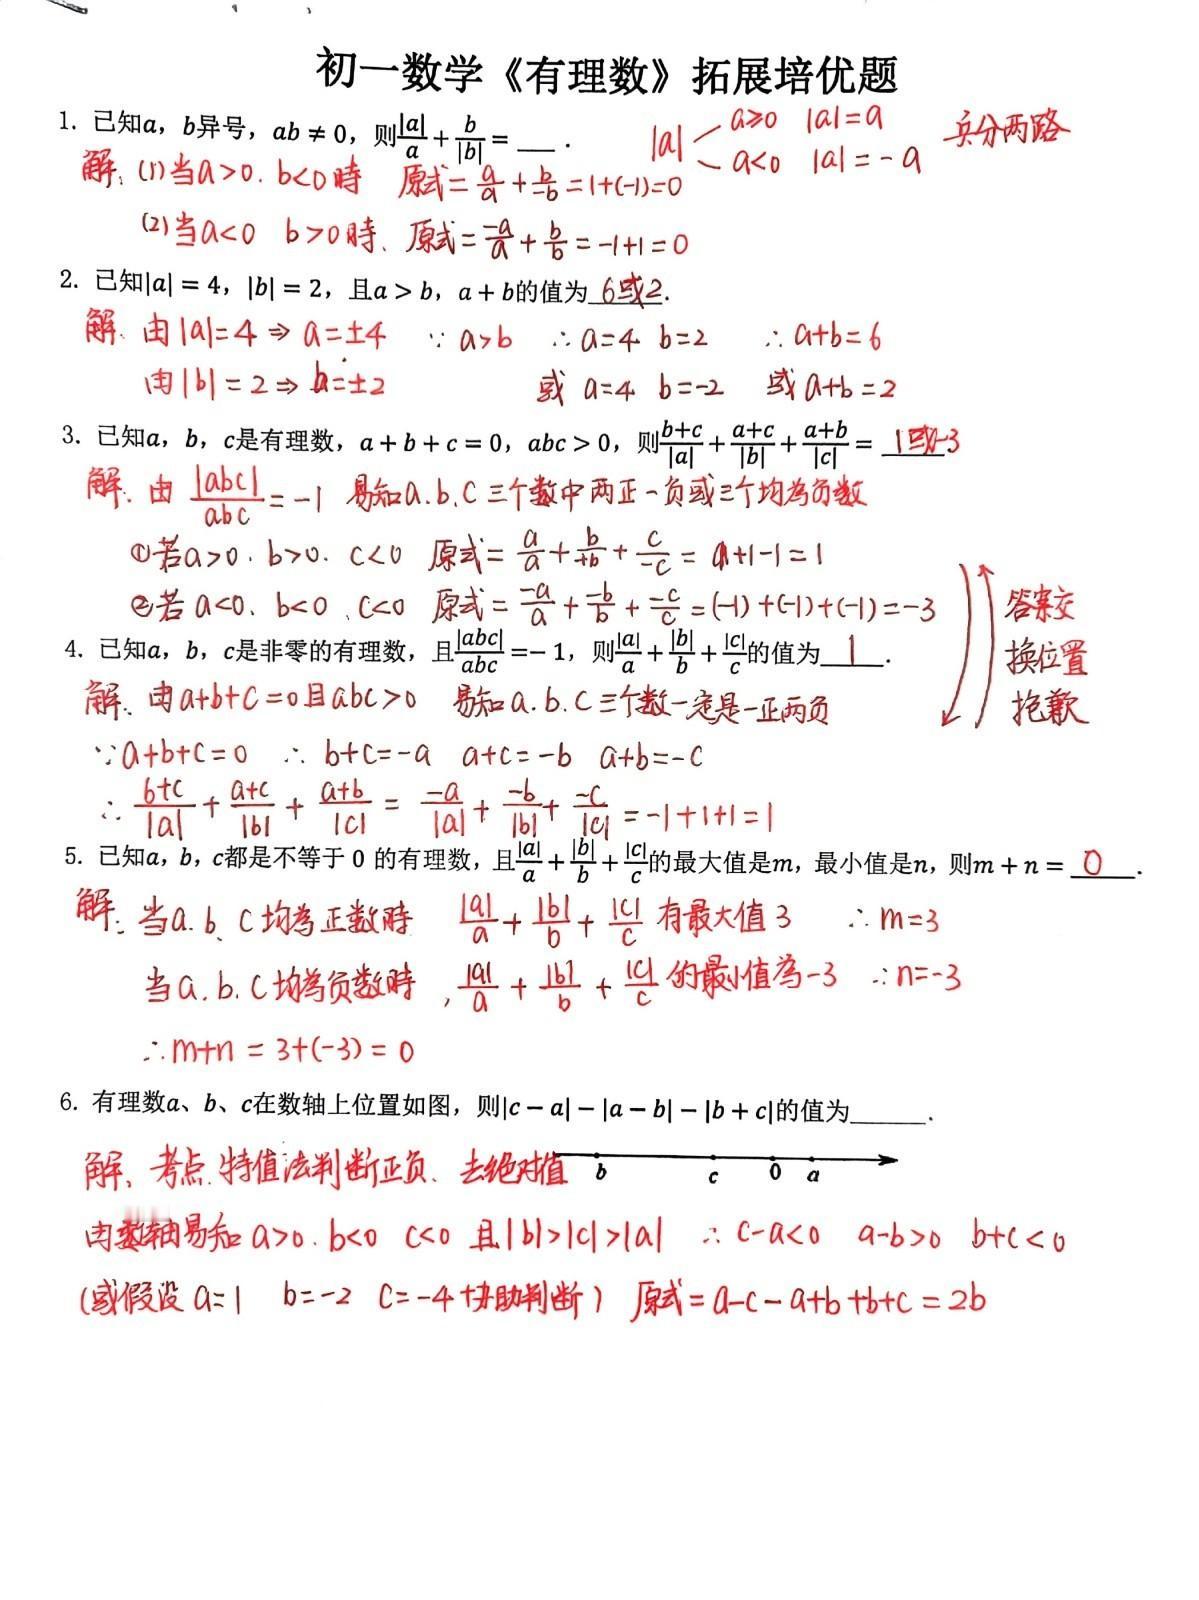 初一数学《有理数》拓展培优题
1. 已知a，b异号，ab ≠ 0，则|a|/a + b/|b| = ___ .
|a| a≥0 |a|=a
a<0 |a|=-a
兵分两路
解: (1)当a>0. b<0時 原式= a/a + b/-b =1+(-1)=0
(2)当a<0 b>0時、原式= -a/a + b/b = -1+1=0
2. 已知|a| = 4，|b| = 2，且a > b，a + b的值为 6或2.
解. 由|a|=4 ⇒ a=±4 ∵ a>b ∴a=4 b=2 ∴a+b=6
由|b|=2 ⇒ b=±2 或 a=4 b=-2 或a+b=2
3. 已知a，b，c是有理数，a + b + c = 0，abc > 0，则b+c/|a| + a+c/|b| + a+b/|c| = 1或-3
解. 由 |abc|/abc = -1 易知a.b.c三个数中两正一负或三个均為负数
①若a>0. b>0. c<0 原式= a/a + b/+b + c/-c = 1+1-1=1
②若a<0. b<0 、c<0 原式= -a/a + -b/b + -c/c =(-1)+(-1)+(-1)=-3
答案交
换位置
抱歉
4. 已知a，b，c是非零的有理数，且|abc|/abc =− 1，则|a|/a + |b|/b + |c|/c的值为 1 .
解、由a+b+c=0且abc>0 易知a.b.c三个数一定是一正两负
∵a+b+c=0 ∴ b+c=-a a+c=-b a+b=-c
∴ b+c/|a| + a+c/|b| + a+b/|c| = -a/|a| + -b/|b| + -c/|c| = -1+1+1=1
5. 已知a，b，c都是不等于 0 的有理数，且|a|/a + |b|/b + |c|/c的最大值是m，最小值是n，则m + n = 0 .
解: 当a.b、c均為正数時 |a|/a + |b|/b + |c|/c 有最大值3 ∴m=3
当a.b.c均為负数時，|a|/a + |b|/b + |c|/c 的最小值為-3 ∴n=-3
∴m+n = 3+(-3) = 0
6. 有理数a、b、c在数轴上位置如图，则|c − a| − |a − b| − |b + c|的值为 ______ .
解、考点.特值法判断正负、去绝对值
b c 0 a
由数轴易知 a>0. b<0 c<0 且|b|>|c|>|a| ∴ c-a<0 a-b>0 b+c<0
(或假设 a=1 b=-2 c=-4 协助判断) 原式= a-c-a+b+b+c = 2b